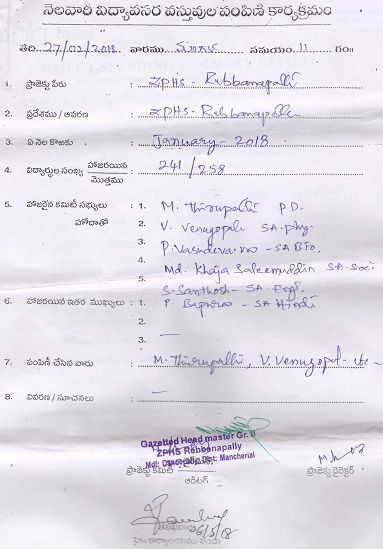 నెలవారీ విద్యావసర వస్తువుల పంపిణి కార్యక్రమం
తేది. 27/02/2018. వారము మంగళ సమయం. 11 గం॥
1. ప్రాజెక్టు పేరు : ZPHS - Rebbanapalli
2. ప్రదేశము / ఆవరణ : ZPHS - Rebbanapalli
3. ఏ నెల కొఱకు : January - 2018
4. విద్యార్థుల సంఖ్య హాజరయిన / మొత్తము : 241 / 258
5. హాజరైన కమిటి సభ్యులు : 1. M. Thirupathi P.D.
హోదాతో 2. V. Venugopal SA. phy.
3. P. Vasudeva rao - SA Bio.
4. Md. Khaja Saleemuddin SA. Soci
5. S. Santhosh - SA. Engl.
6. హాజరయిన ఇతర ముఖ్యులు : 1. P Bapurao - SA Hindi
2. —
3. —
7. పంపిణీ చేసిన వారు : M. Thirupathi, V. Venugopal - etc -
8. వివరణ / సూచనలు : —
Gazetted Head master Gr. II
ZPHS Rebbonapally
Mdl: Dist: Mancherial
ప్రాజెక్టు కమిటి ప్రాజెక్టు డైరెక్టర్
ఆడిటర్
06/5/18